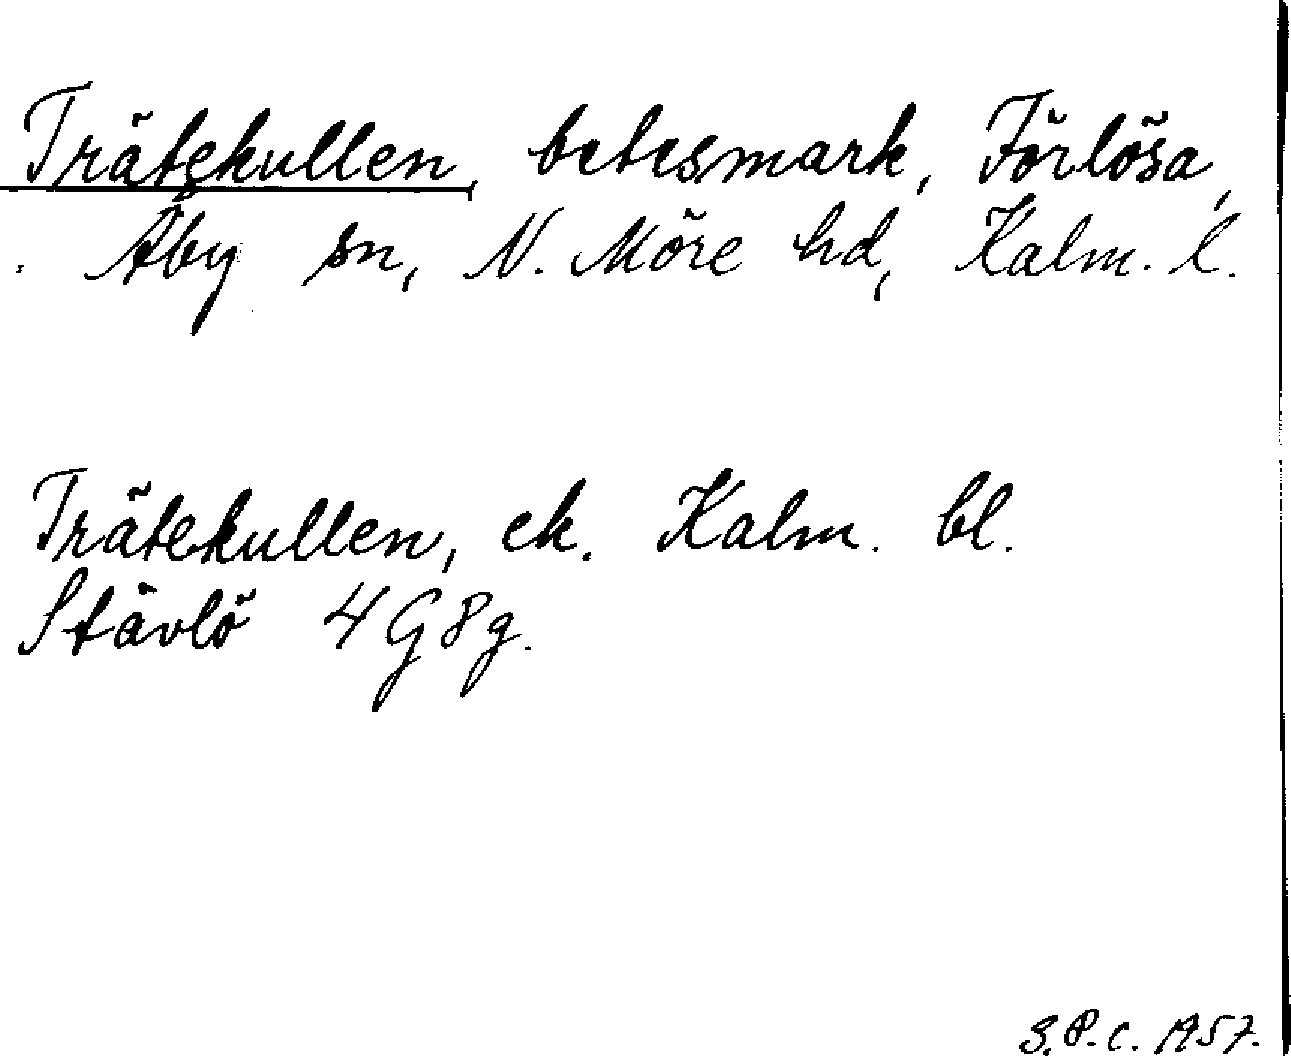 Trätekullen, betesmark, Förlösa,
Åby sn, N. Möre hd, Kalm. l.
Trätekullen, ek. Kalm. bl.
Stävlö 4G8g.
S.P.C. 1957.